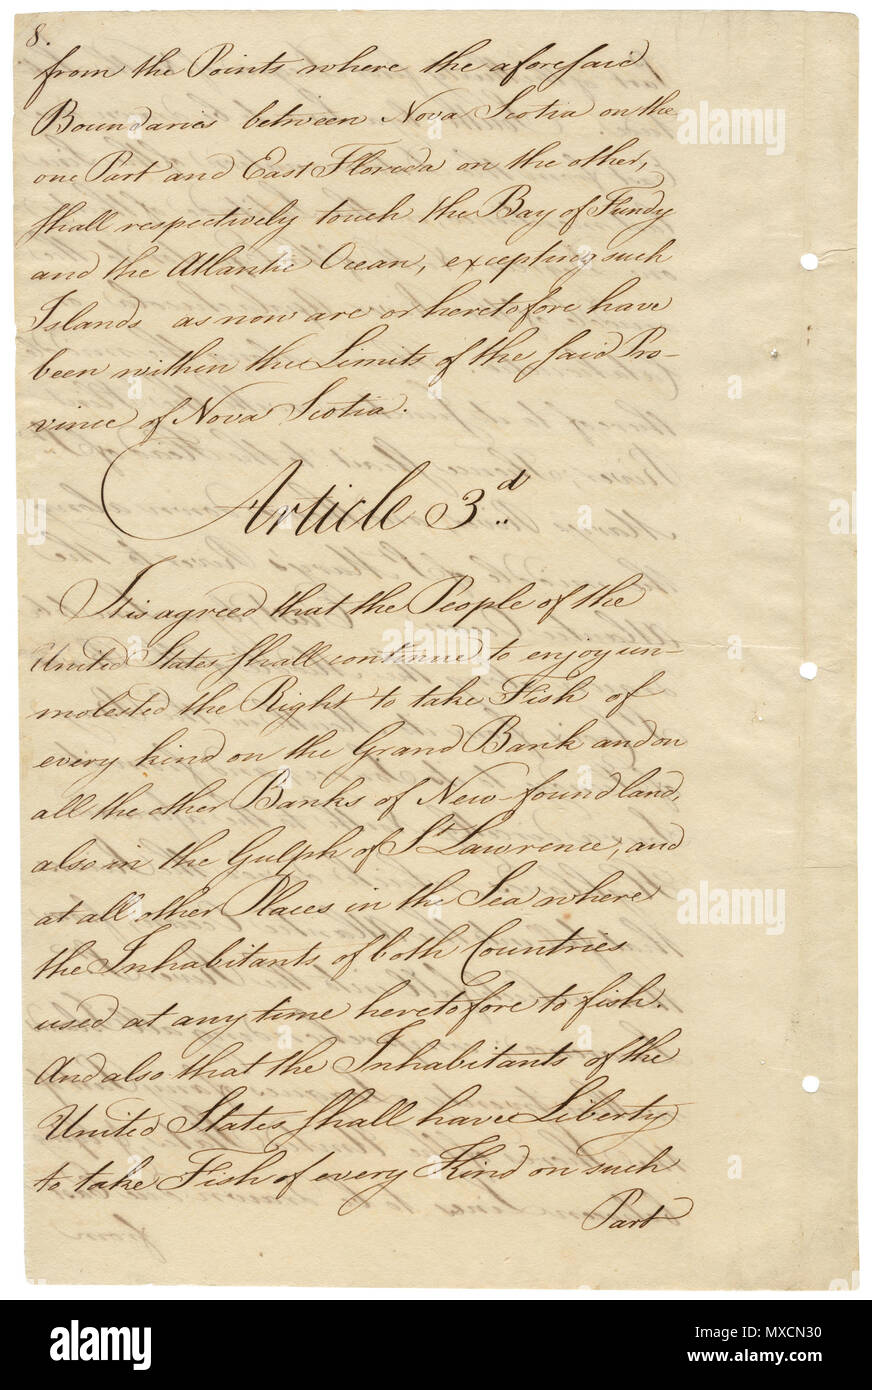 8.
from the Points where the aforesaid
Boundaries between Nova Scotia on the
one Part and East Florida on the other,
shall respectively touch the Bay of Fundy
and the Atlantic Ocean, excepting such
Islands as now are or heretofore have
been within the Limits of the said Pro-
vince of Nova Scotia.
Article 3.d
It is agreed that the People of the
United States shall continue to enjoy un-
molested the Right to take Fish of
every kind on the Grand Bank and on
all the other Banks of New-foundland,
also in the Gulph of St. Lawrence, and
at all other Places in the Sea where
the Inhabitants of both Countries
used at any time heretofore to fish.
And also that the Inhabitants of the
United States shall have Liberty
to take Fish of every Kind on such
Part
alamy
alamy
alamy
alamy
alamy
a
a
a
a
a
a
a
alamy
Image ID: MXCN30
www.alamy.com